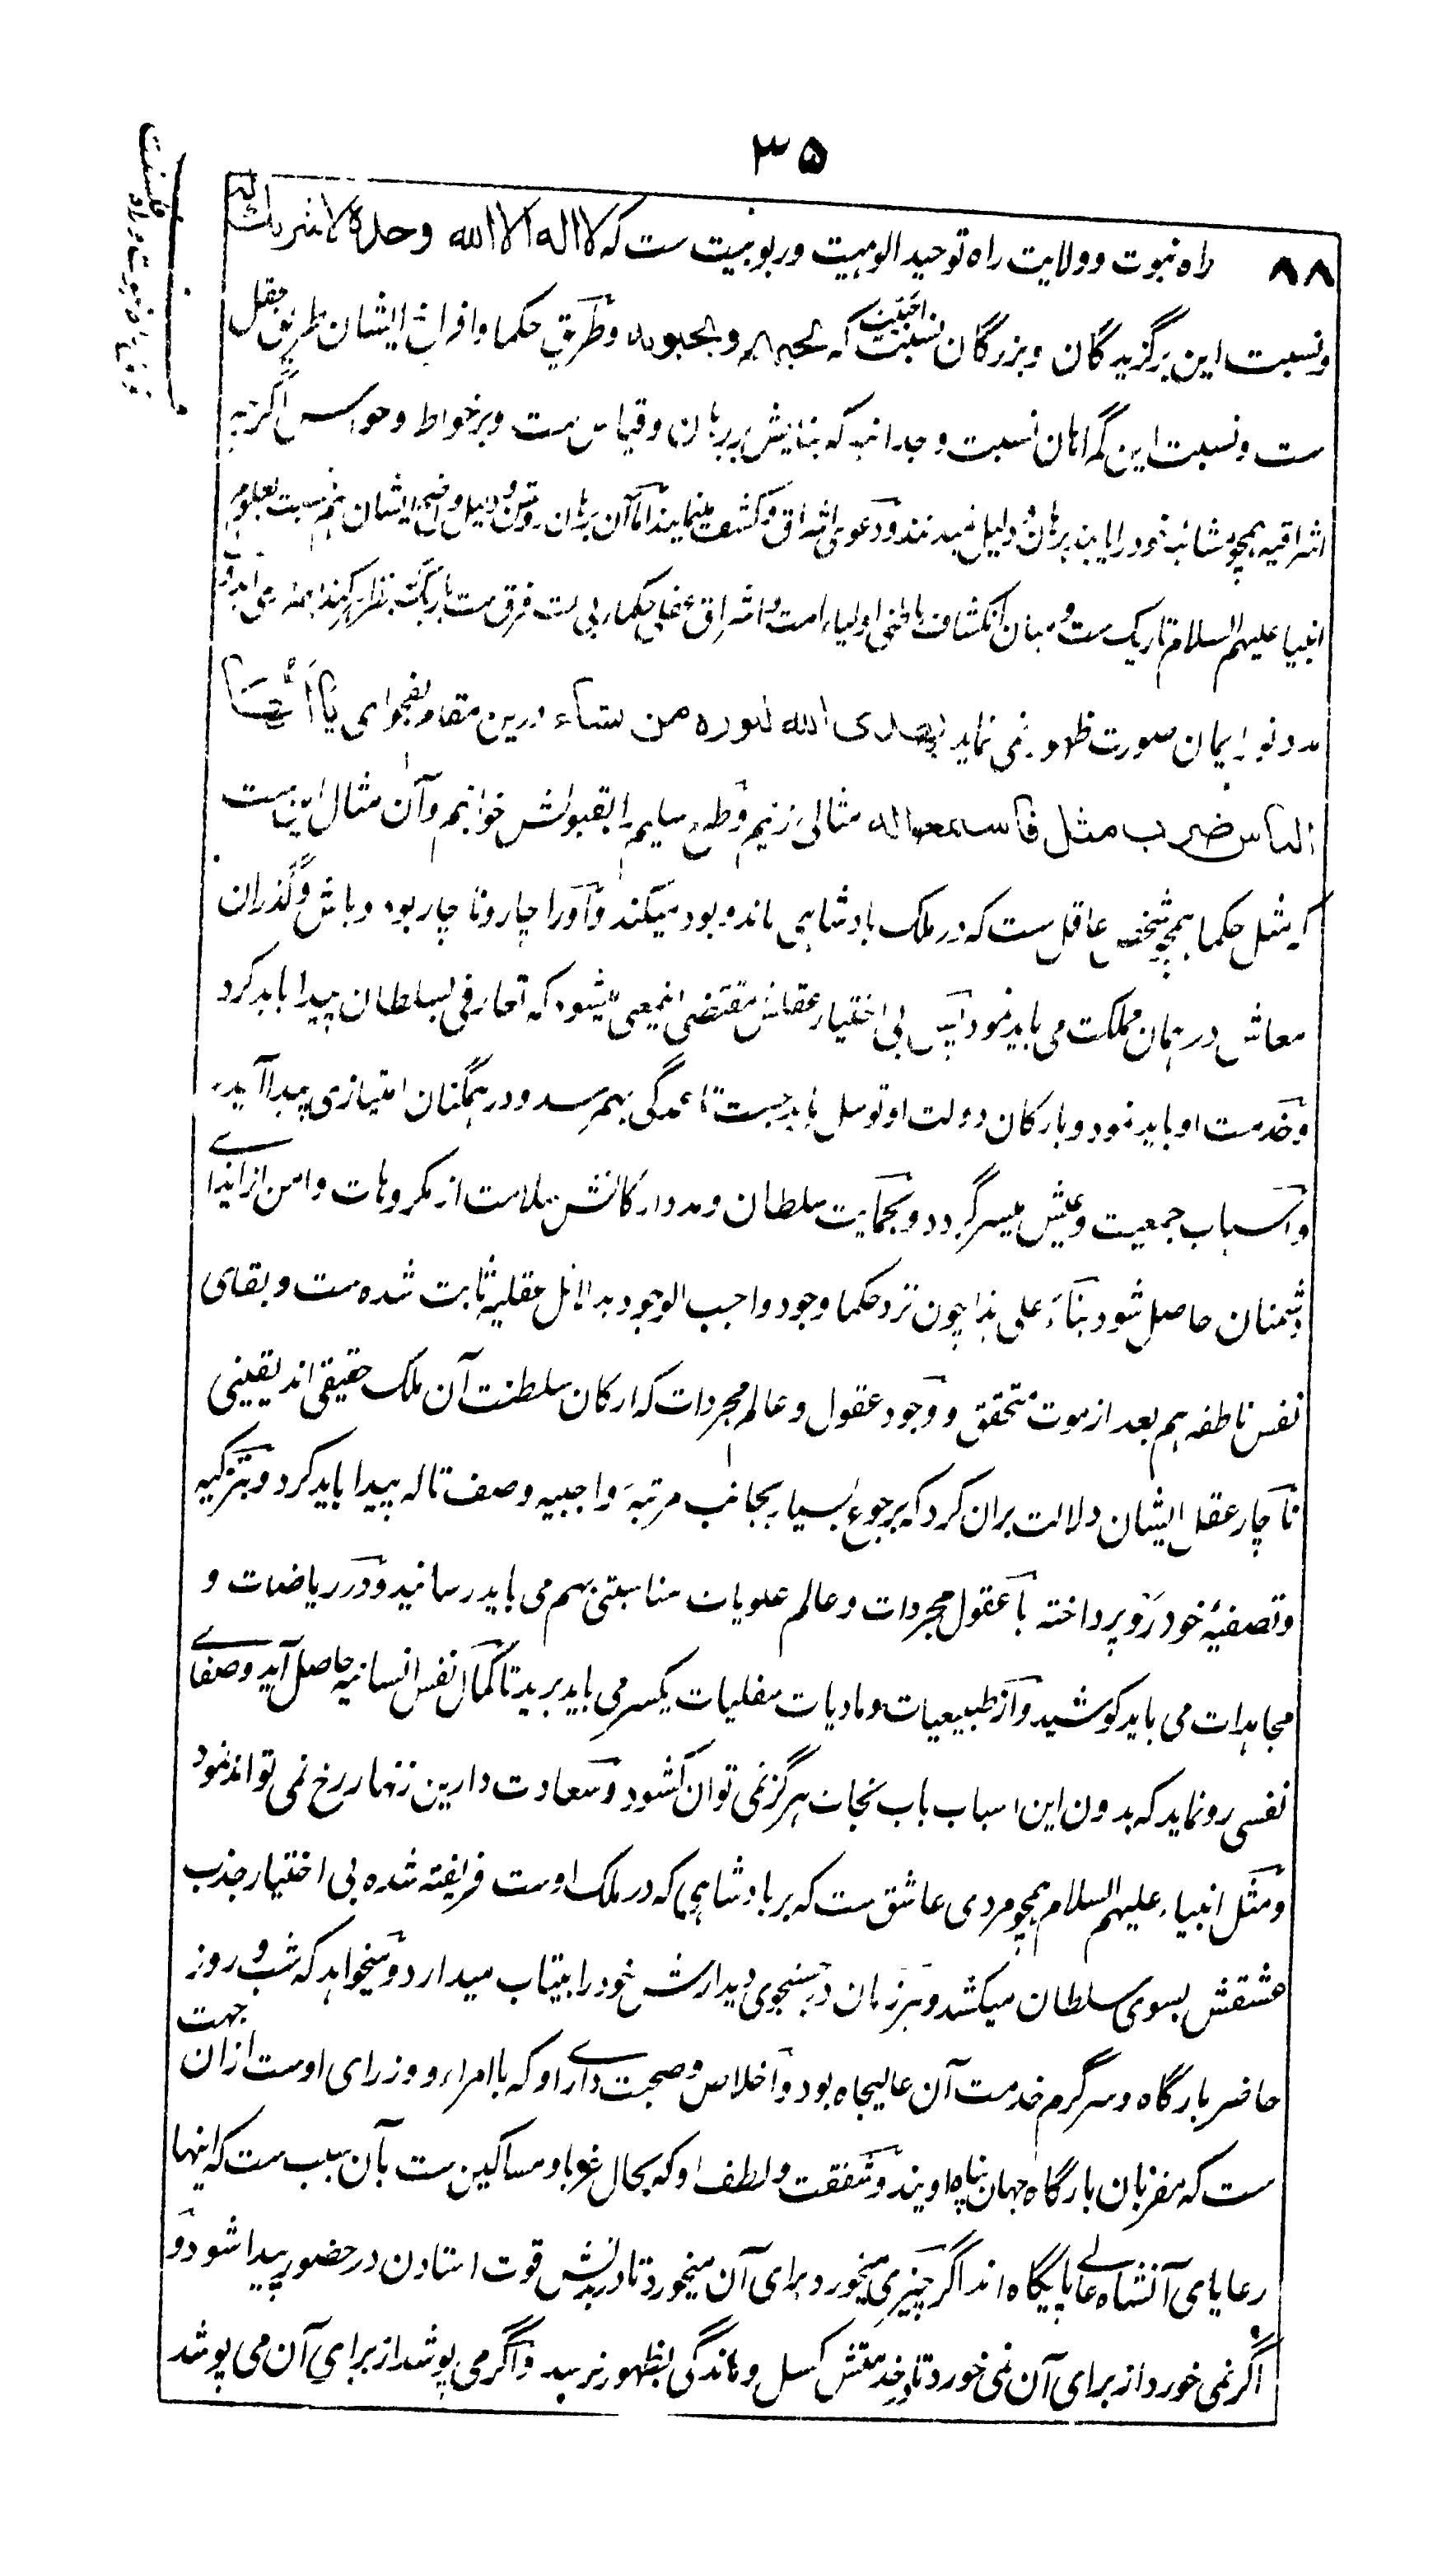 ۳۵
۸۸ راه نبوت وولایت راه توحید الوہیت وربوبیت ست که لا اله الا الله وحده لا شریک له
ونسبت این برگزیدگان وبزرگان نسبت احبیّت که یحبهم ویحبونه وطریق حکما وافراخ ایشان طریق عقل
ست ونسبت این گمراهان نسبت وجدانیه که بنایش بر برہان وقیاس ست وبر خواط وحواس اگرچه
اشراقیه ہمچو مشائیه خود را پابند برہان ودلیل نمیدانند ودعوی اشراق وکشف مینمایند اما آن برہان روشن ودلیل واضح ایشان ہم نسبت بعلوم
انبیا علیہم السلام تاریک ست ومیان انکشاف باطنی اولیاء امت واشراق عقلی حکما بسی ست فرق ست باریک بنظر ہر کند ذہنه می آید و
بدون نور ایمان صورت ظہور نمی نماید یهدی الله لنوره من یشاء درین مقام بفحوای یا ایها
الناس ضرب مثل فاستمعوا له مثالی زنیم وطبع سلیم را بقبولش خوانیم وآن مثال این ست
که مثل حکما ہمچو شخصی عاقل ست که در ملک بادشاہی ماند وبود میکند واو را چار وناچار بود وباش وگذران
معاش در ہمان مملکت می باید نمود پس بی اختیار عقلش مقتضی اینمعنی میشود که تعارفی بسلطان پیدا باید کرد
وخدمت او باید نمود وبارکان دولت او توسل باید جست تا عمدگی بہم رسد ودر ہمگنان امتیازی پیدا آید
واسباب جمعیت وعیش میسر گردد وبحمایت سلطان ومدد ارکانش سلامت از مکروہات وامن از ایذای
دشمنان حاصل شود بناءً علی ہذا چون نزد حکما وجود واجب الوجود بدلائل عقلیه ثابت شده ست وبقای
نفس ناطقه ہم بعد از موت متحقق ووجود عقول وعالم مجردات که ارکان سلطنت آن ملک حقیقی اند یقینی
ناچار عقل ایشان دلالت بران کرد که برجوع بسیار بجانب مرتبه واجبیه وصف تاله پیدا باید کرد وبتزکیه
وتصفیهٔ خود رو پرداخته با عقول مجردات وعالم علویات مناسبتی بہم می باید رسانید ودر ریاضات و
مجاہدات می باید کوشید واز طبیعیات ومادیات سفلیات یکسر می باید برید تا کمال نفس انسانیه حاصل آید وصفای
نفسی رو نماید که بدون این اسباب باب نجات ہرگز نمی توان گشود وسعادت دارین زنہار رخ نمی تواند نمود
ومثل انبیاء علیہم السلام ہمچو مردی عاشق ست که بر بادشاہی که در ملک اوست فریفته شده بی اختیار جذب
عشقش بسوی سلطان میکشد وہر زمان در جستجوی دیدارش خود را بیتاب میدارد ومیخواہد که شب وروز
حاضر بارگاه وسرگرم خدمت آن عالیجاه بود واخلاص وصحبت داری او که با امراء ووزرای اوست ازان جہت
ست که مقربان بارگاه جہان پناه اویند وشفقت ولطف او که بحال غربا ومساکین ست بآن سبب ست که اینها
رعایای آنشاه عالی پایگاه اند اگر چیزی میخورد برای آن میخورد تا در بدنش قوت استادن در حضور پیدا شود و
اگر نمی خورد از برای آن نمی خورد تا در خدمتش کسل وماندگی بظہور نرسد واگر می پوشد از برای آن می پوشد